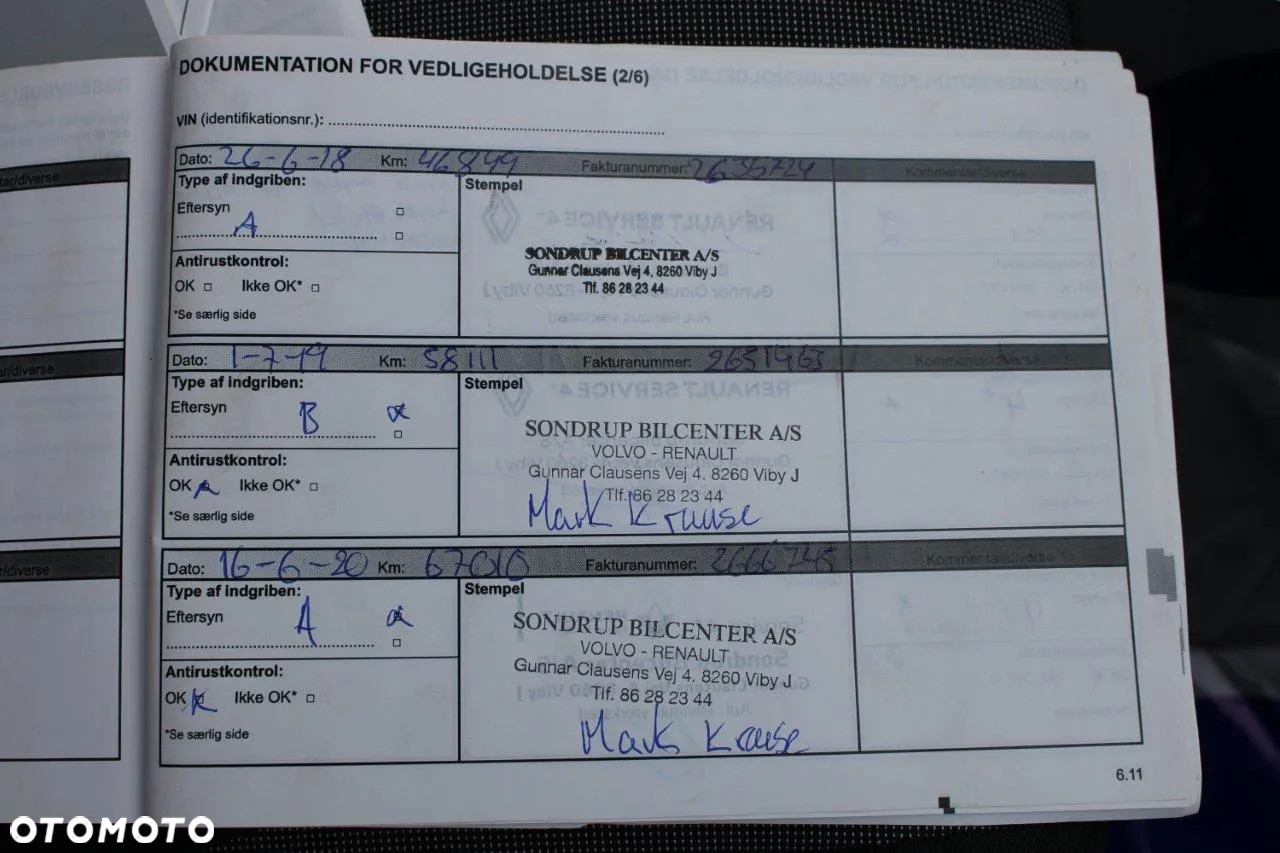 DOKUMENTATION FOR VEDLIGEHOLDELSE (2/6)
VIN (identifikationsnr.):
Dato: 26-6-18 Km: 46849 Fakturanummer: Kommentar/diverse
Type af indgriben:
Stempel
Eftersyn
A
RENAULT SERVICE
SONDRUP BILCENTER A/S
Gunnar Clausens Vej 4, 8260 Viby J
Tlf. 86 28 23 44
Antirustkontrol:
OK Ikke OK*
*Se særlig side
Dato: 1-7-19 Km: 58111 Fakturanummer: 2651463 Kommentar/diverse
Type af indgriben:
Stempel
Eftersyn
B
RENAULT SERVICE
SONDRUP BILCENTER A/S
VOLVO - RENAULT
Gunnar Clausens Vej 4. 8260 Viby J
Tlf. 86 28 23 44
Mark Krause
Antirustkontrol:
OK Ikke OK*
*Se særlig side
Dato: 16-6-20 Km: 67010 Fakturanummer: 2666745 Kommentar/diverse
Type af indgriben:
Stempel
Eftersyn
A
SONDRUP BILCENTER A/S
VOLVO - RENAULT
Gunnar Clausens Vej 4. 8260 Viby J
Tlf. 86 28 23 44
Mark Krause
Antirustkontrol:
OK Ikke OK*
*Se særlig side
6.11
OTOMOTO